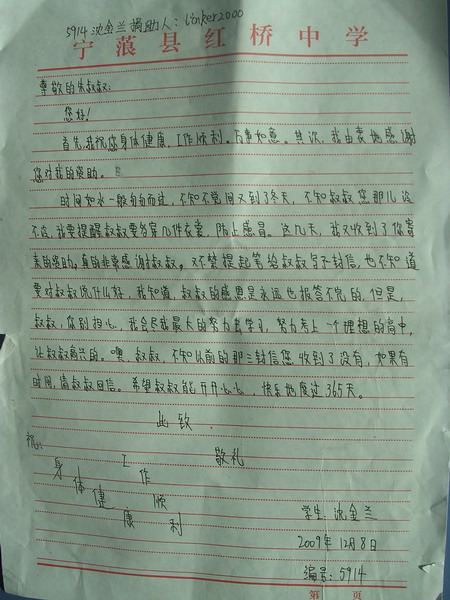 5914 沈金兰 捐助人：binker2000
宁蒗县红桥中学
尊敬的朱叔叔：
您好！
首先，我祝您身体健康、工作顺利、万事如意。其次，我由衷地感谢
您对我的资助。
时间如水一般匆匆而过，不知不觉间又到了冬天，不知叔叔您那儿冷
不冷，我要提醒叔叔要多穿几件衣裳，防上感冒。这几天，我又收到了你寄
来的资助，真的非常感谢叔叔，又不禁提起笔给叔叔写下封信，也不知道
要对叔叔说什么好，我知道，叔叔的感恩是永远也报答不完的，但是，
叔叔，您别担心，我会尽我最大的努力去学习，努力考上一个理想的高中，
让叔叔高兴的。噢，叔叔，不知以前的那三封信您收到了没有，如果有
时间，请叔叔回信。希望叔叔能开开心心、快乐地度过365天。
此致
敬礼
祝：
身体健康
工作顺利
学生：沈金兰
2009年12月8日
编号：5914
第 页